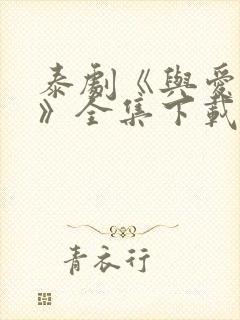 泰劇《與愛
》全集下載
青衣行